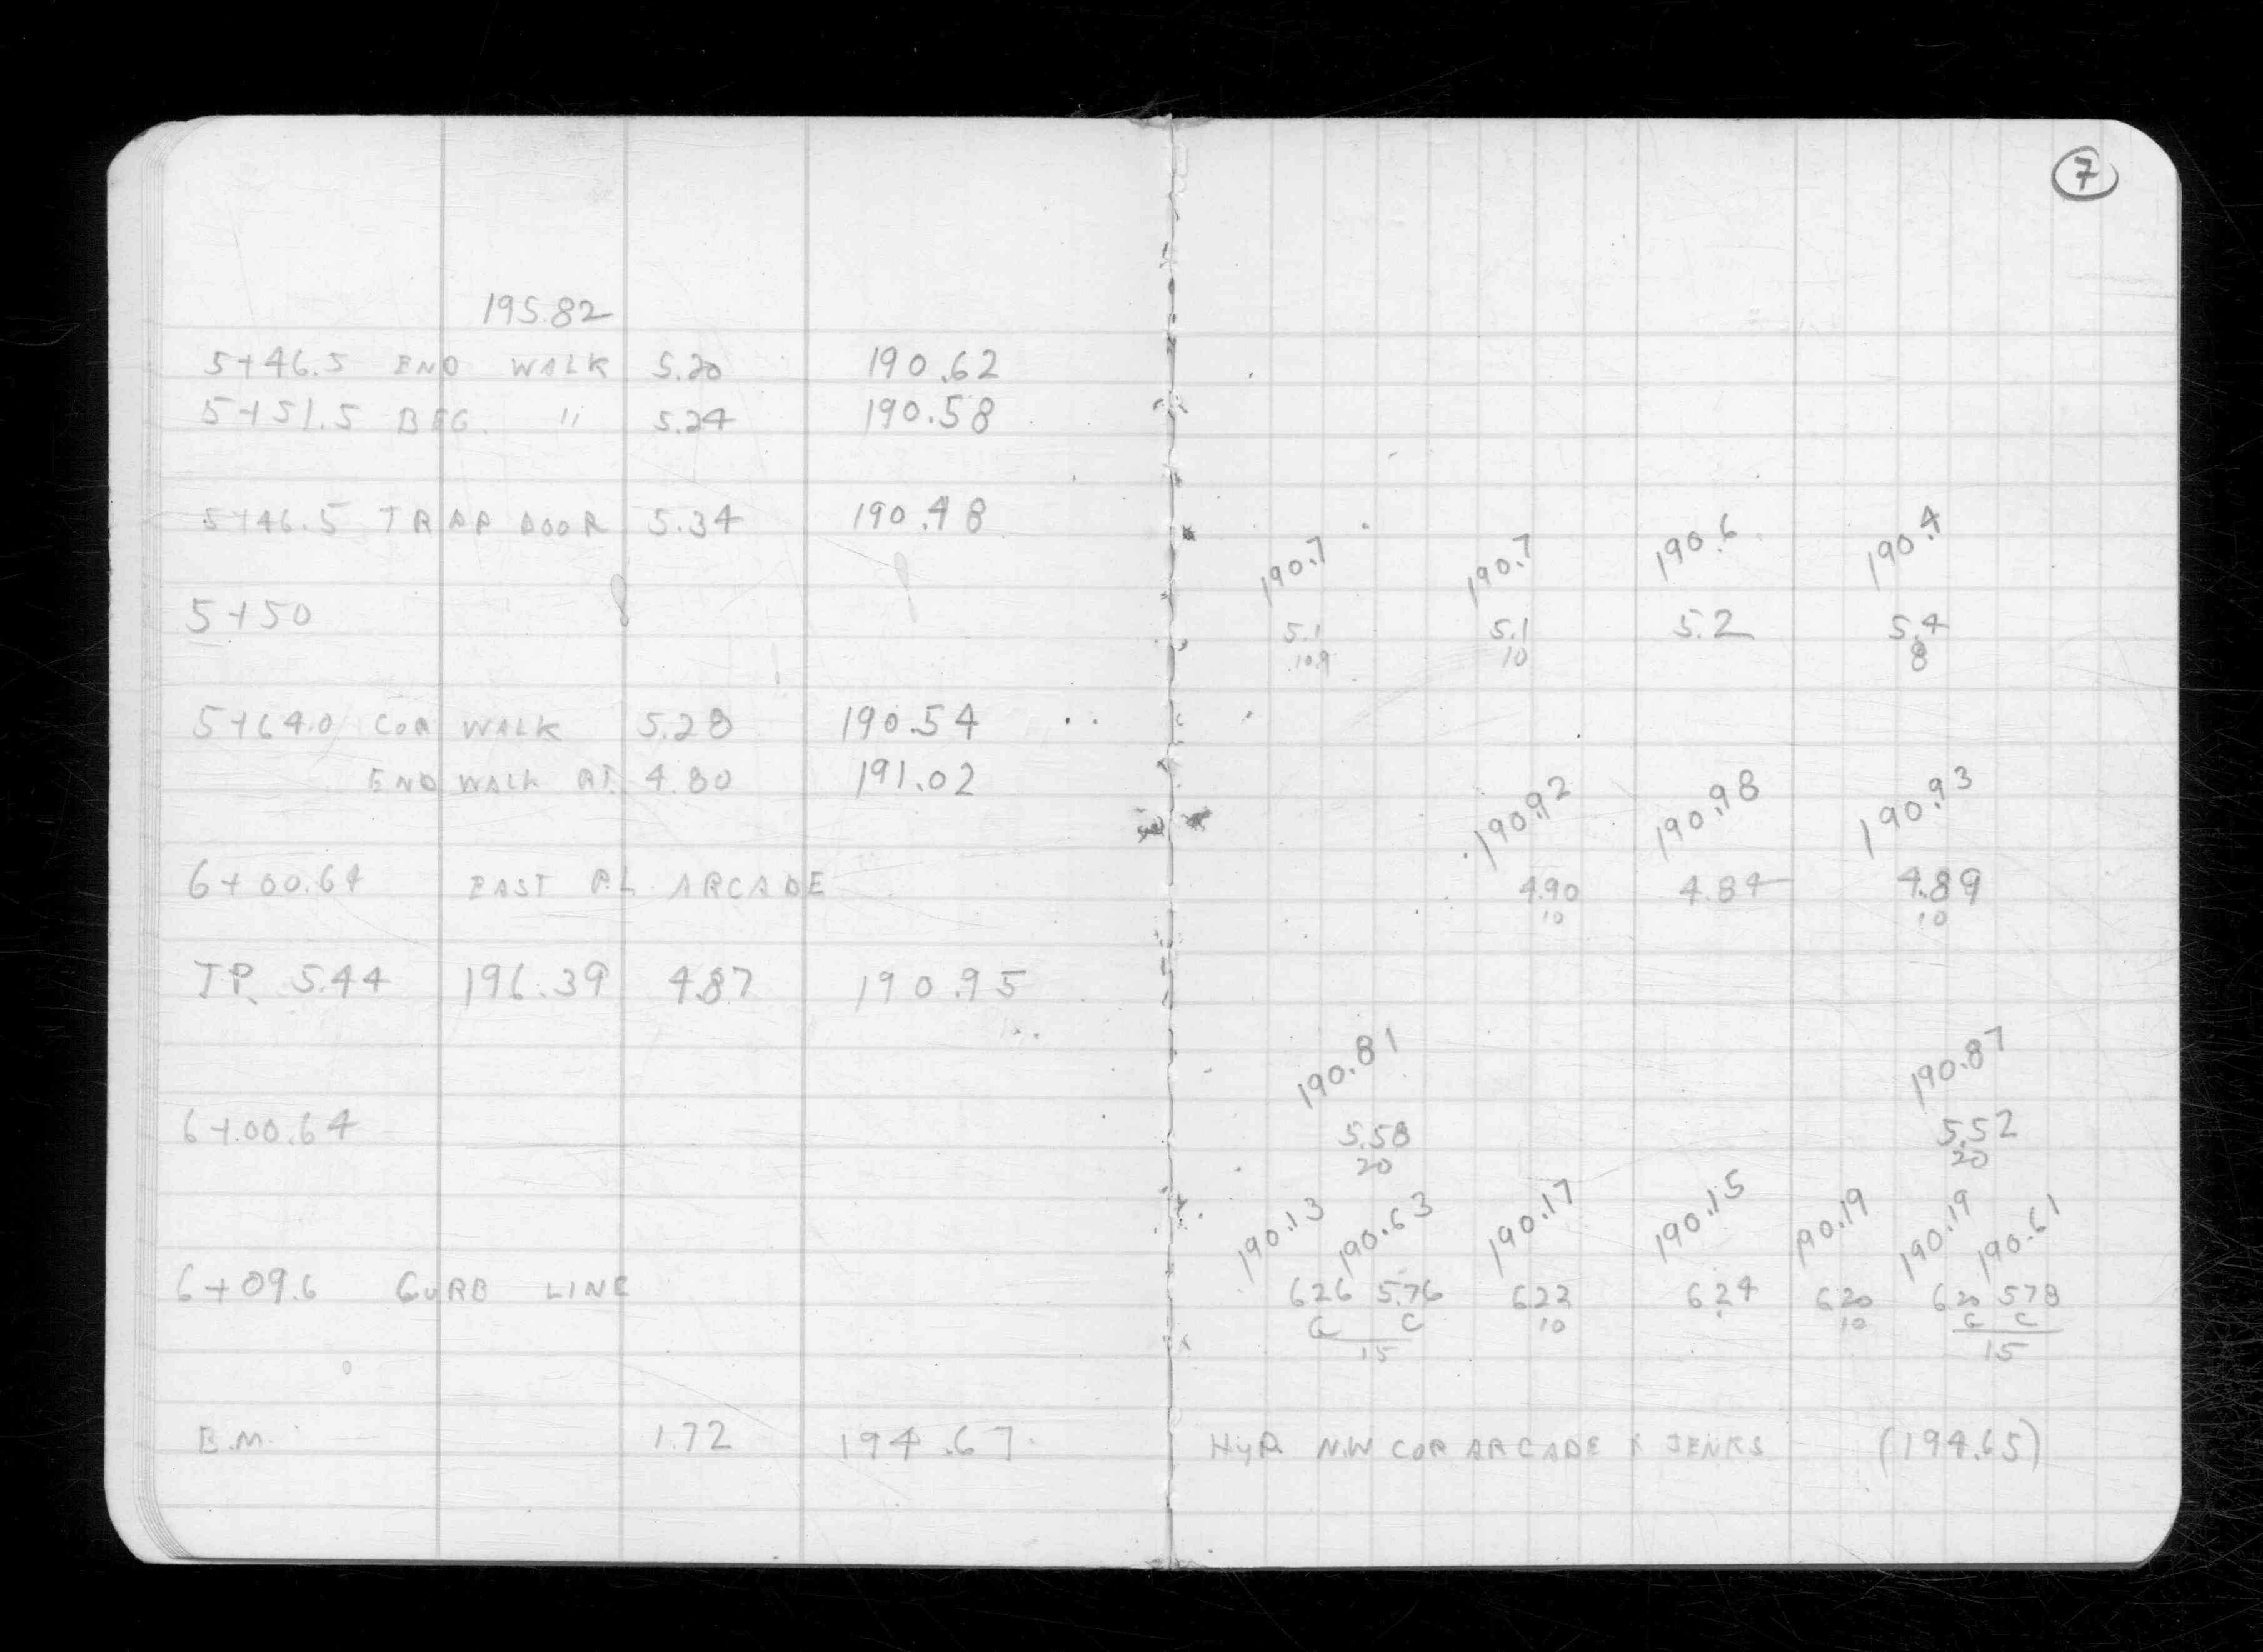 7
195.82
5+46.5 END WALK 5.20 190.62
5+51.5 BEG. " 5.24 190.58
5+46.5 TRAP DOOR 5.34 190.48
190.7 190.7 190.6 190.4
5+50 5.1 5.1 5.2 5.4
10.9 10 8
5+64.0 COR WALK 5.28 190.54
END WALK RT. 4.80 191.02
190.92 190.98 190.93
6+00.64 EAST P.L. ARCADE 4.90 4.84 4.89
10 10
T.P. 5.44 196.39 4.87 190.95
190.81 190.87
6+00.64 5.58 5.52
20 20
190.13 190.63 190.17 190.15 190.19 190.19 190.61
6+09.6 CURB LINE 6.26 5.76 6.22 6.24 6.20 6.20 5.78
G C 10 10 G C
15 15
B.M. 1.72 194.67 HYD. N.W COR ARCADE & JENKS (194.65)